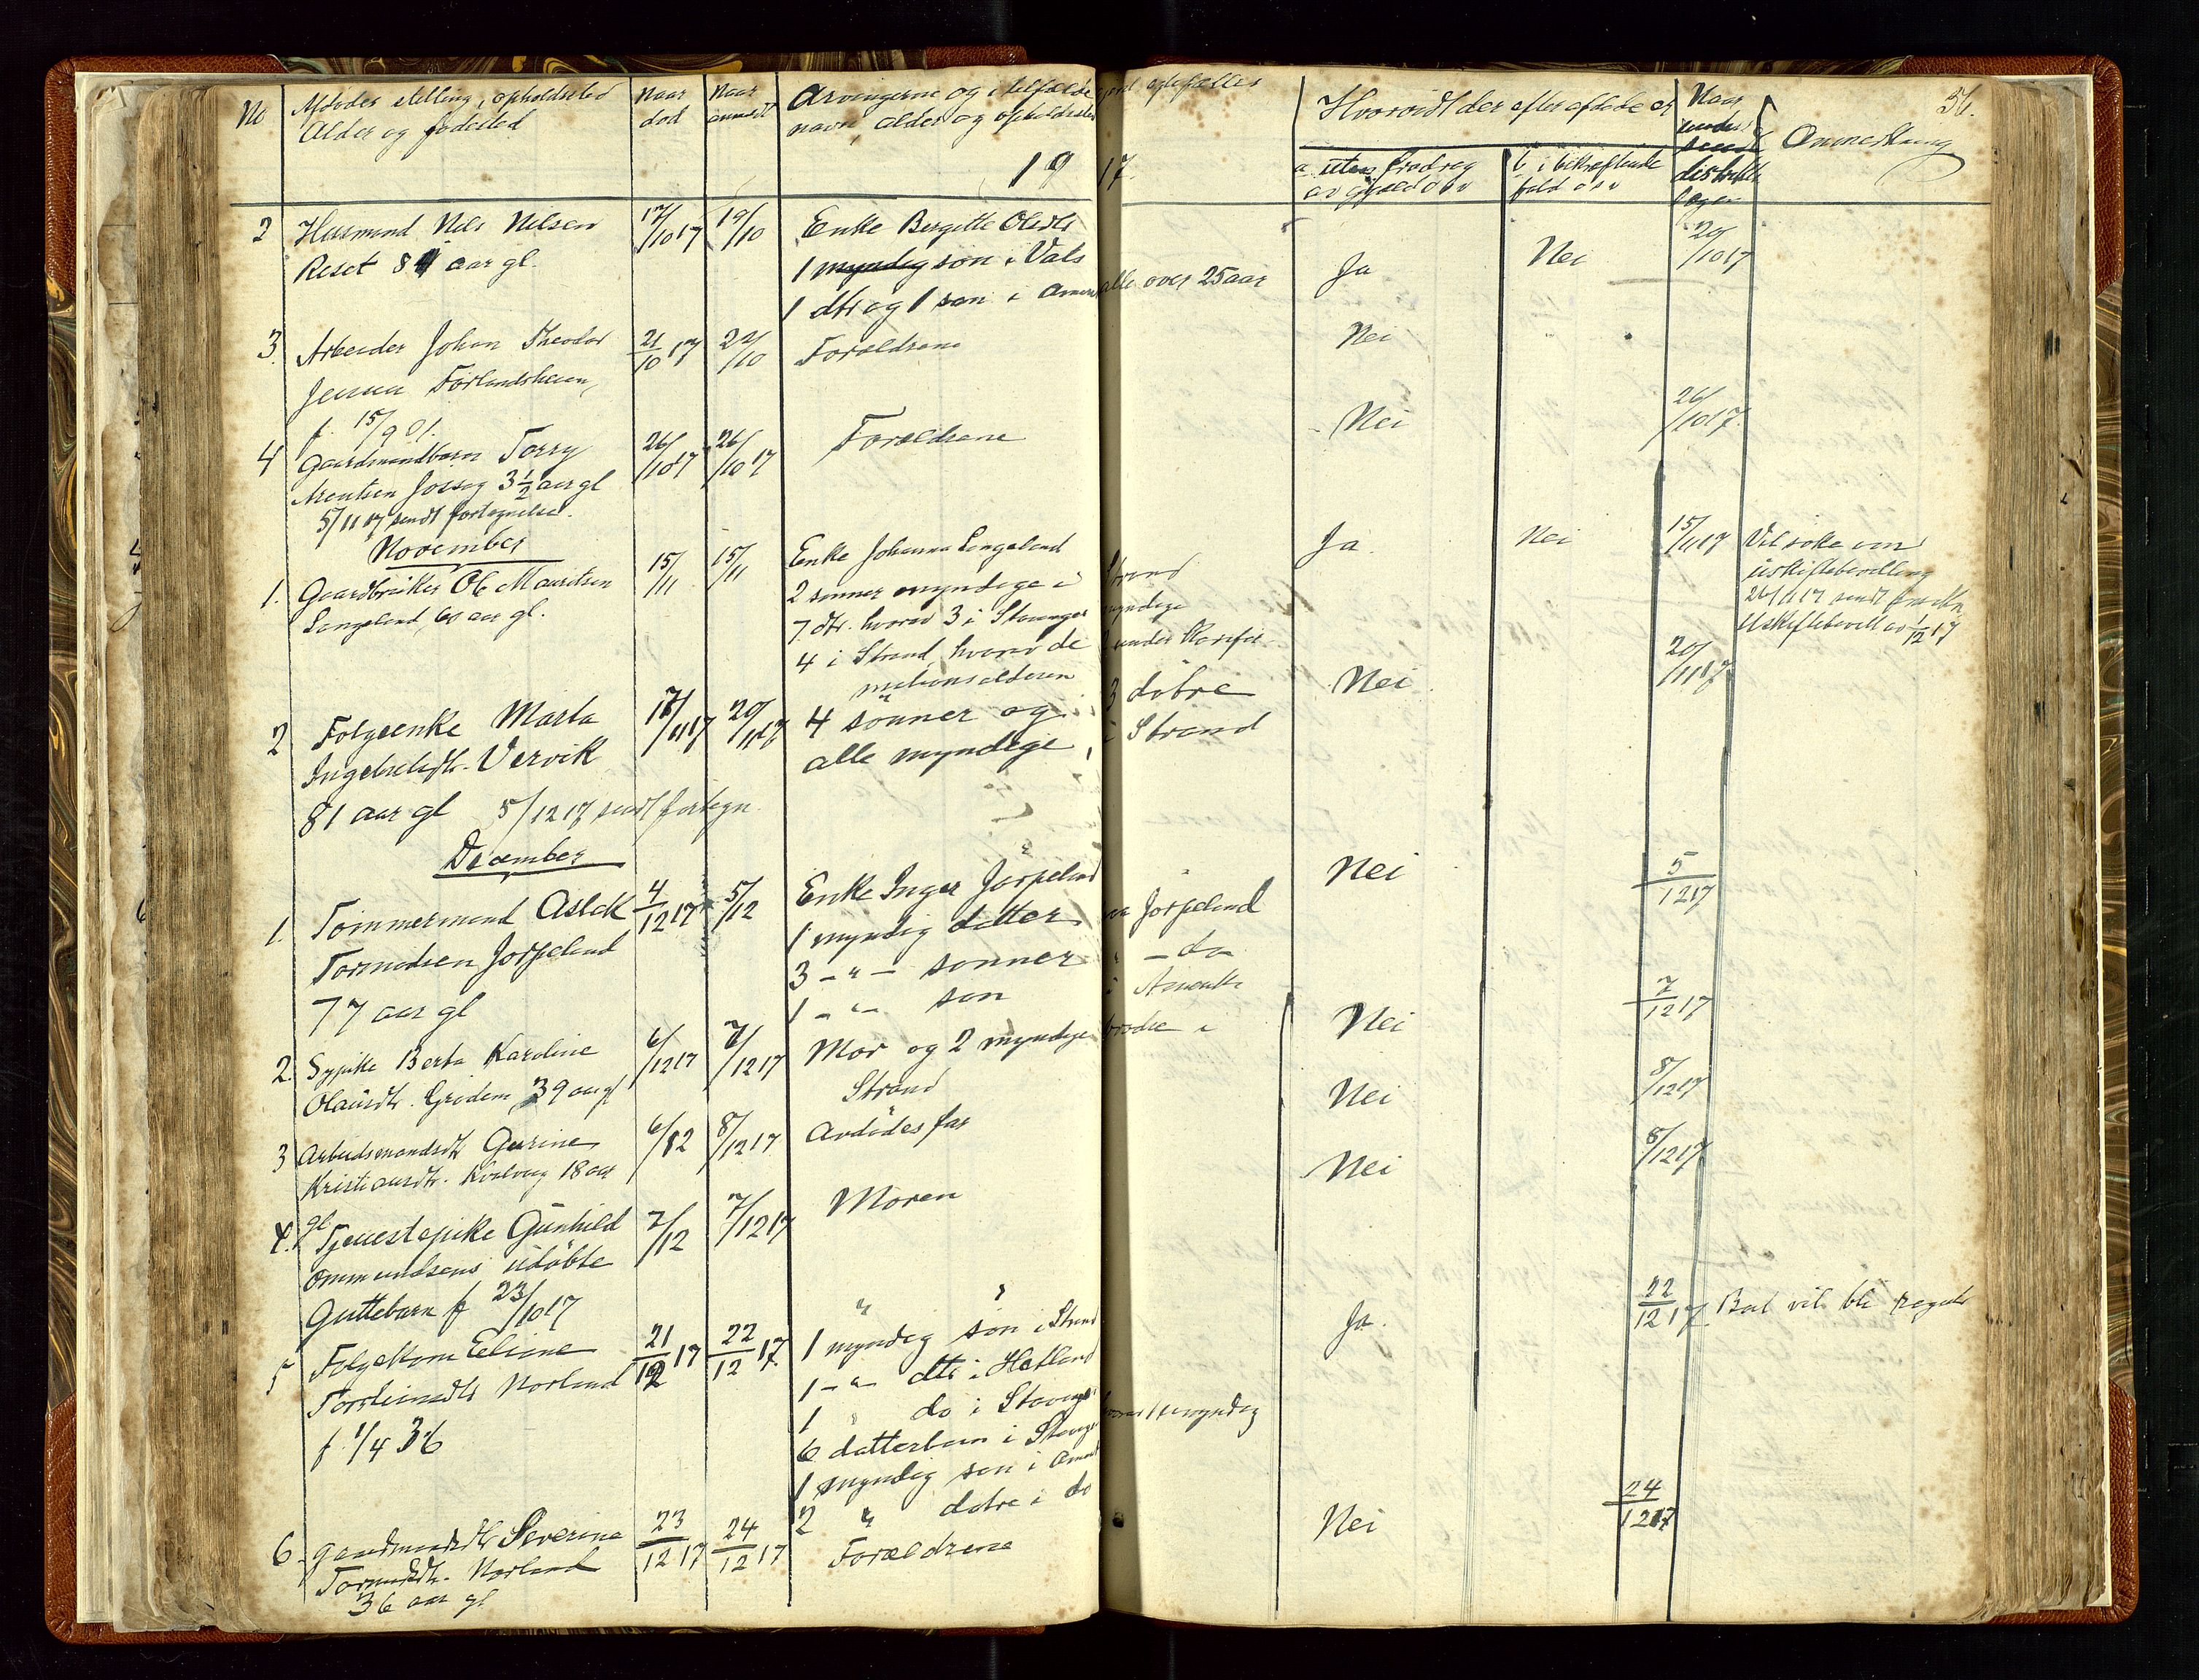 No
Afdødes stilling, opholdssted
Alder og fødested
Naar
død
Naar
anmeldt
Arvingerne og i tilfælde
navn alder og opholdssted
Hvorvidt der efter afdøde er
a. uten fradrag
av gjæld osv
b i bekræftende
fald osv
Naar
Anmerkning
36.
1917.
2 Husmand Nils Nilsen
Reset 84 aar gl.
17/10 17
19/10
Enke Bergitte Olsdtr
1 myndig søn i Vats
1 dtr og 1 søn i Amerik alle over 25 aar
Ja
Nei
20/10 17
3. Arbeider Johan Theodor
Jensen
f. 15/9 01.
21/10 17
22/10
Forældrene
Nei
4 Gaardmandbarn Torry
3 1/2 aar gl
5/11 17 sendt fortegnelse.
26/10 17
26/10 17
Forældrene
Nei
26/10 17.
November
1. Gaardbruker Ole Mauritsen
Langeland, 60 aar gl.
15/11
15/11
Enke Johanna Langeland
2 sønner myndige i Strand
7 dtr. hvorav 3 i Stavanger myndige
4 i Strand, hvorav de 2 under Konfir-
mationsalderen
Ja.
Nei
15/11 17
Vil søke om
uskiftebevilling
26/11 17 sendt
Uskiftebevill av 1/12 17
2 Folgeenke Marta
Ingebretsdtr. Vervik
81 aar gl 5/12 17 sendt fortegn.
17/11 17
20/11 17
4 sønner og 3 døtre
alle myndige i Strand
Nei
20/11 17
December
1. Tømmermand Aslak
Tormodsen Jørpeland
77 aar gl
4/12 17
5/12
Enke Inger Jørpeland
1 myndig datter paa Jørpeland
3 - " - sønner " - do
1 - " - søn i Amerika
Nei
5/12 17
2. Sypike Berta Karoline
Olausdtr. Grødem 39 aar gl
6/12 17
7/12 17
Mor og 2 myndige brødre i
Strand
Nei
7/12 17
3 Arbeidsmandsdtr Gurine
Kristiansdtr. Kvalvaag 18 aar
gl
6/12
8/12 17
Avdødes far
Nei
8/12 17
4. Tjenestepike Gunhild
Ommundsens udøbte
Guttebarn f 23/10 17
7/12
7/12 17
Moren
Nei
8/12 17
5 Folgekone Eliane
Torsteinsdtr Norland
f. 1/4 36
21/12 17
22/12 17.
1 myndig søn i Strand
1 - " - dtr i Hetland
1 " do i Stavanger
6 datterbarn i Stavanger hvorav 1 umyndig
1 myndig søn i Amerik
2 " døtre i do
Ja.
22/12 17.
Boet vil bli
6. Gaardmandsdtr Severine
Tormodsdtr. Norland
36 aar gl
23/12 17
24/12 17
Forældrene
Nei
24/12 17